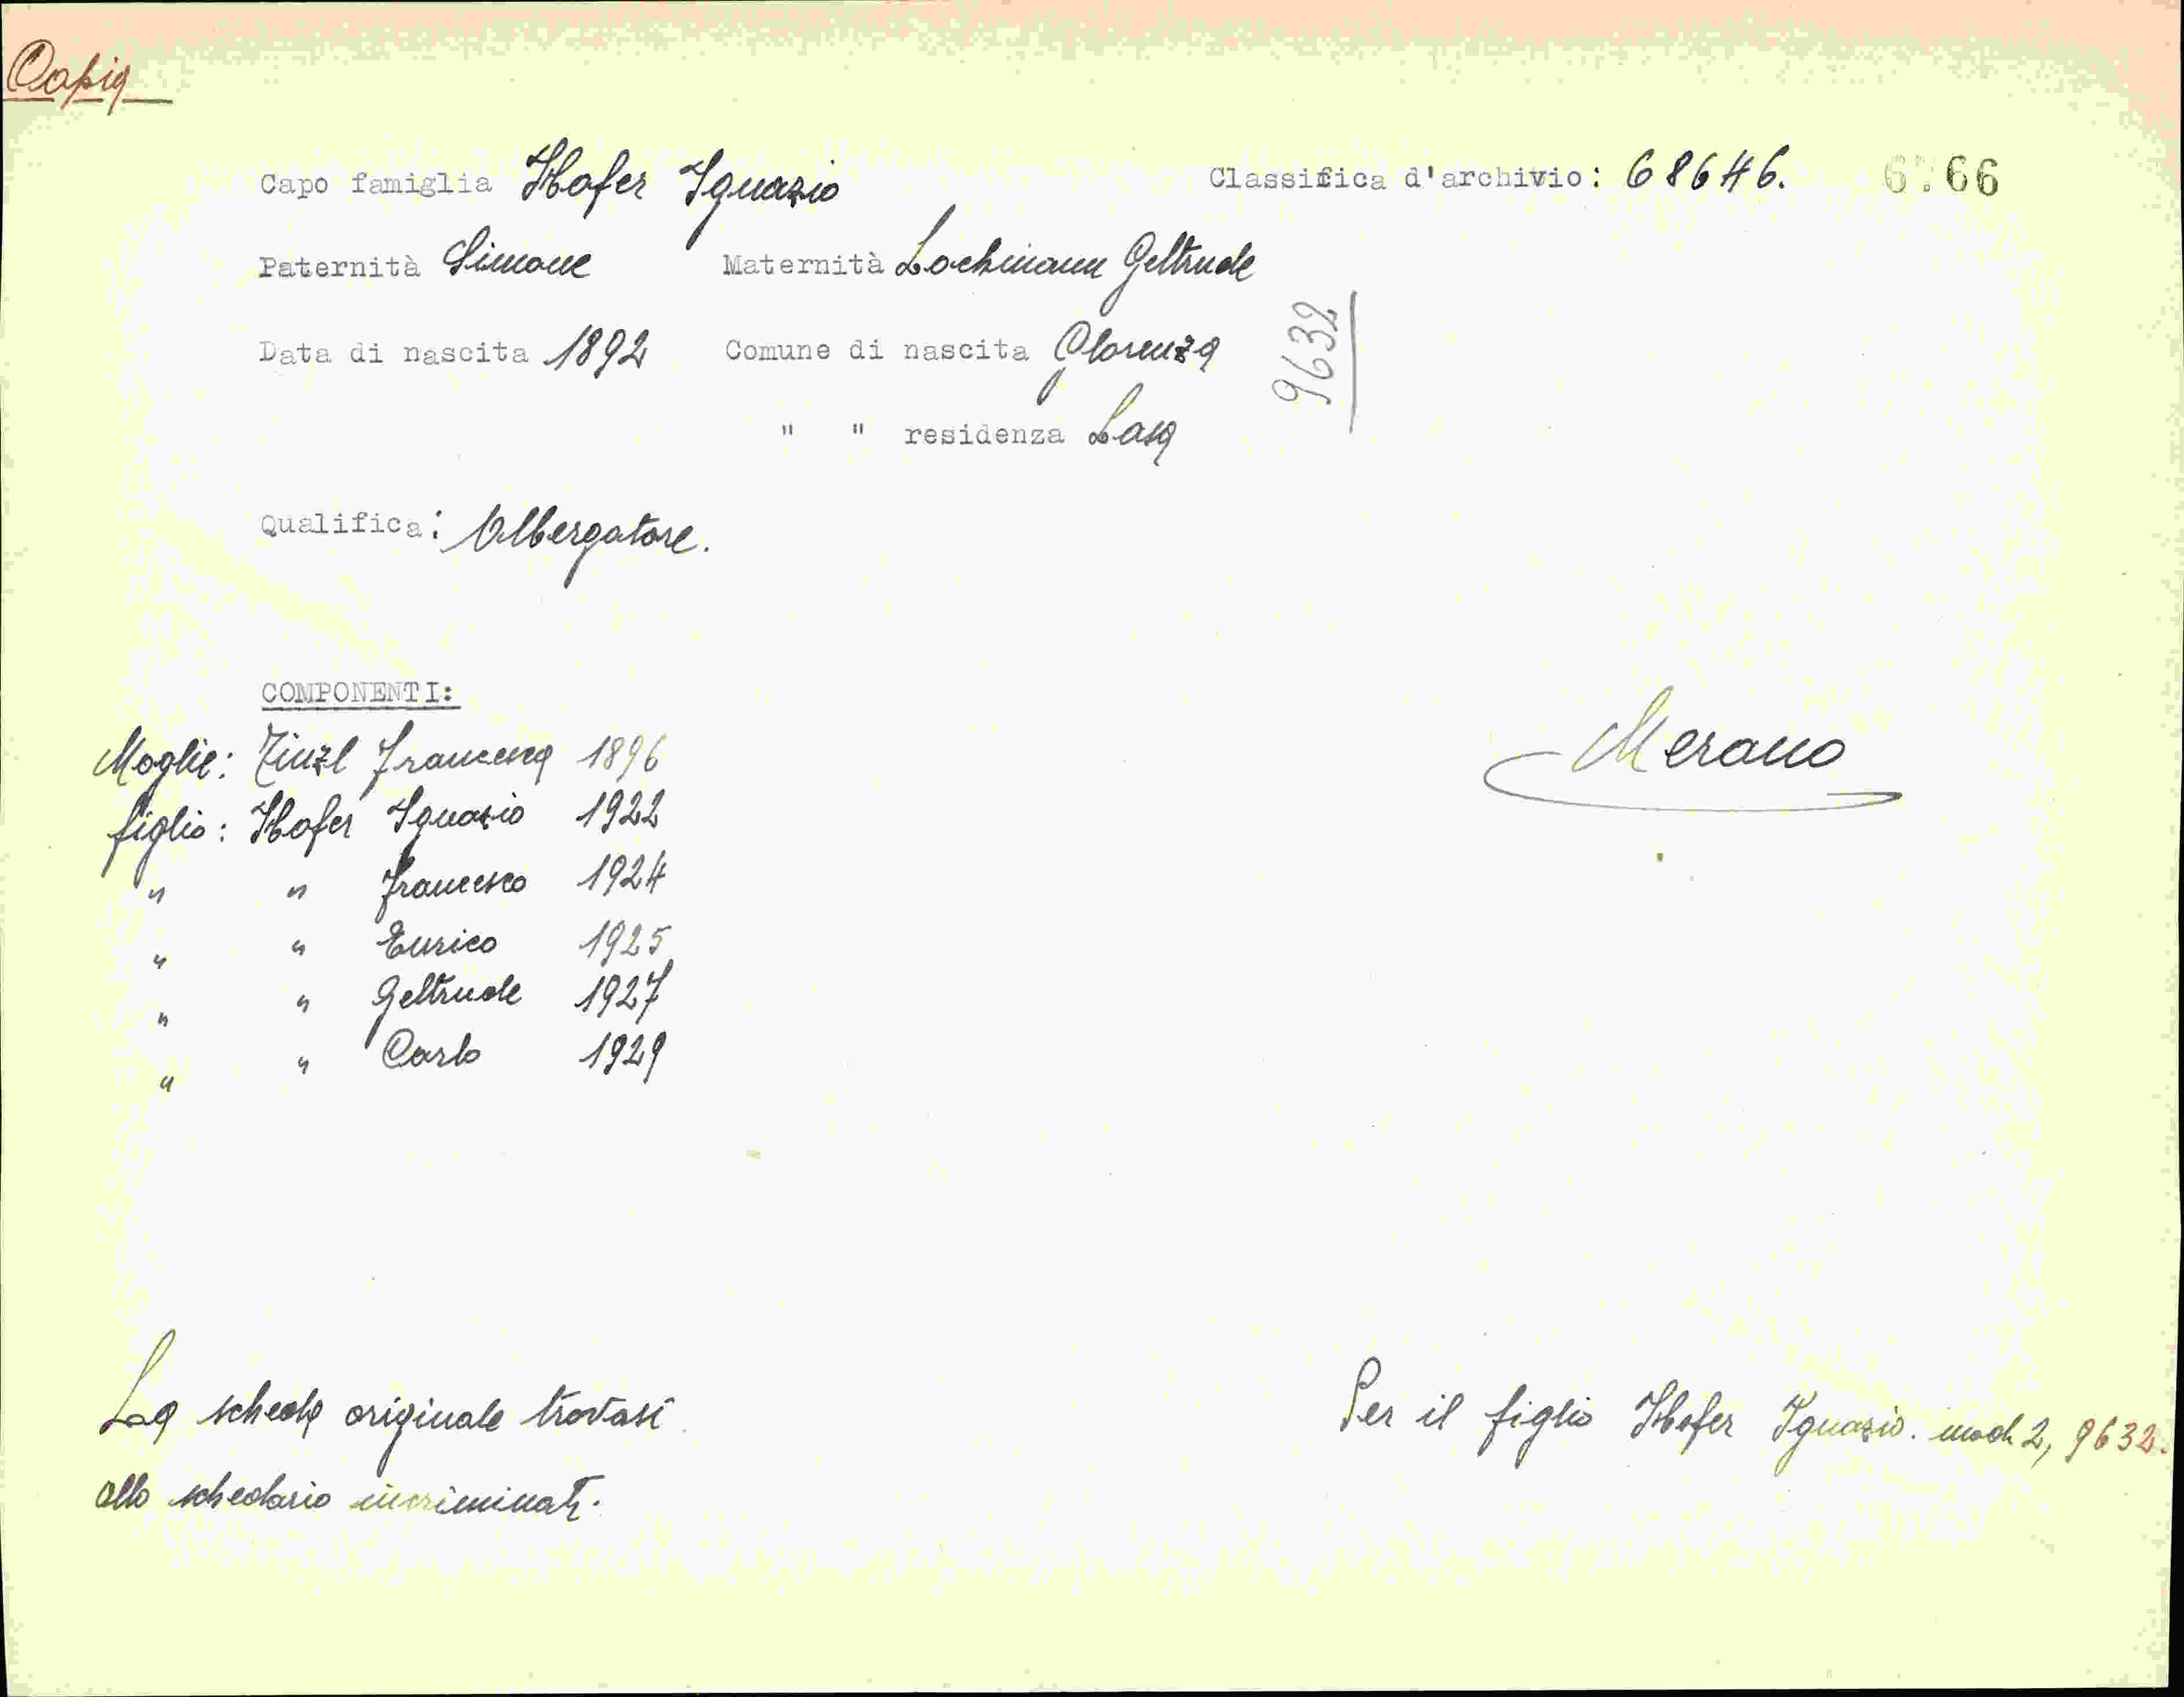 Copia
Capo famiglia Hofer Ignazio Classifica d'archivio: 68646. 66
Paternità Simone Maternità Lochmann Geltrude
Data di nascita 1892 Comune di nascita Glorenza
9632
" " residenza Lasa
Qualifica: Albergatore.
COMPONENTI:
Moglie: Tinzl Francesca 1896
Merano
figlio: Hofer Ignazio 1922
" " Francesco 1924
" " Enrico 1925
" " Geltrude 1927
" " Carlo 1929
La scheda originale trovasi
allo schedario incriminati.
Per il figlio Hofer Ignazio. mod. 2, 9632.